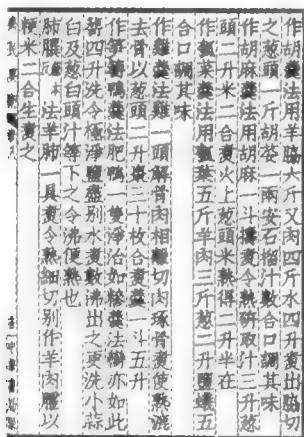 作胡羹法用羊脇六斤又肉四斤水四升煮出脇切
之葱頭一斤胡荽一兩安石榴汁數合口調其味
作胡麻羹法用胡麻一斗擣煮令熟研取汁三升葱
頭二升米二合煮火上葱頭米熟得二升半在
作瓠葉羹法用瓠葉五斤羊肉三斤葱二升鹽蟻五
合口調其味
作雞羹法雞一頭解骨肉相離切肉琢骨煮使熟漉
去骨以葱頭二升棗三十枚合煮羹一斗五升
作笋䇞鴨羹法肥鴨一隻淨治如糝羹法臠亦如此
䇞四升洗令極淨鹽盡別水煮數沸出之更洗小蒜
白及葱白豉汁等下之令沸便熟也
肺䐑法羊肺一具煮令熟細切別作羊肉臛以
粳米二合生煮之